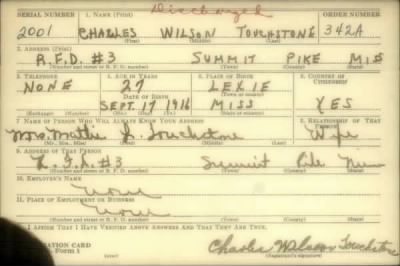 Discharged
SERIAL NUMBER 1. NAME (Print) ORDER NUMBER
2001 CHARLES WILSON TOUCHSTONE 342A
(First) (Middle) (Last)
2. ADDRESS (Print)
R.F.D. #3 SUMMIT PIKE MIS
(Number and street or R. F. D. number) (Town) (County) (State)
3. TELEPHONE 4. AGE IN YEARS 5. PLACE OF BIRTH 6. COUNTRY OF CITIZENSHIP
NONE 27 LEXIE
DATE OF BIRTH
SEPT. 17 1916 MISS YES
(Exchange) (Number) (Mo.) (Day) (Yr.) (State or country)
7. NAME OF PERSON WHO WILL ALWAYS KNOW YOUR ADDRESS 8. RELATIONSHIP OF THAT PERSON
Mrs. Mattie L. Touchstone Wife
(Mr., Mrs., Miss) (First) (Middle) (Last)
9. ADDRESS OF THAT PERSON
R.F.D. #3 Summit Pike Miss
(Number and street or R. F. D. number) (Town) (County) (State)
10. EMPLOYER'S NAME
None
11. PLACE OF EMPLOYMENT OR BUSINESS
None
(Number and street or R. F. D. number) (Town) (County) (State)
I AFFIRM THAT I HAVE VERIFIED ABOVE ANSWERS AND THAT THEY ARE TRUE.
RATION CARD
Form 1 Charles Wilson Touchstone
(Registrant's signature)